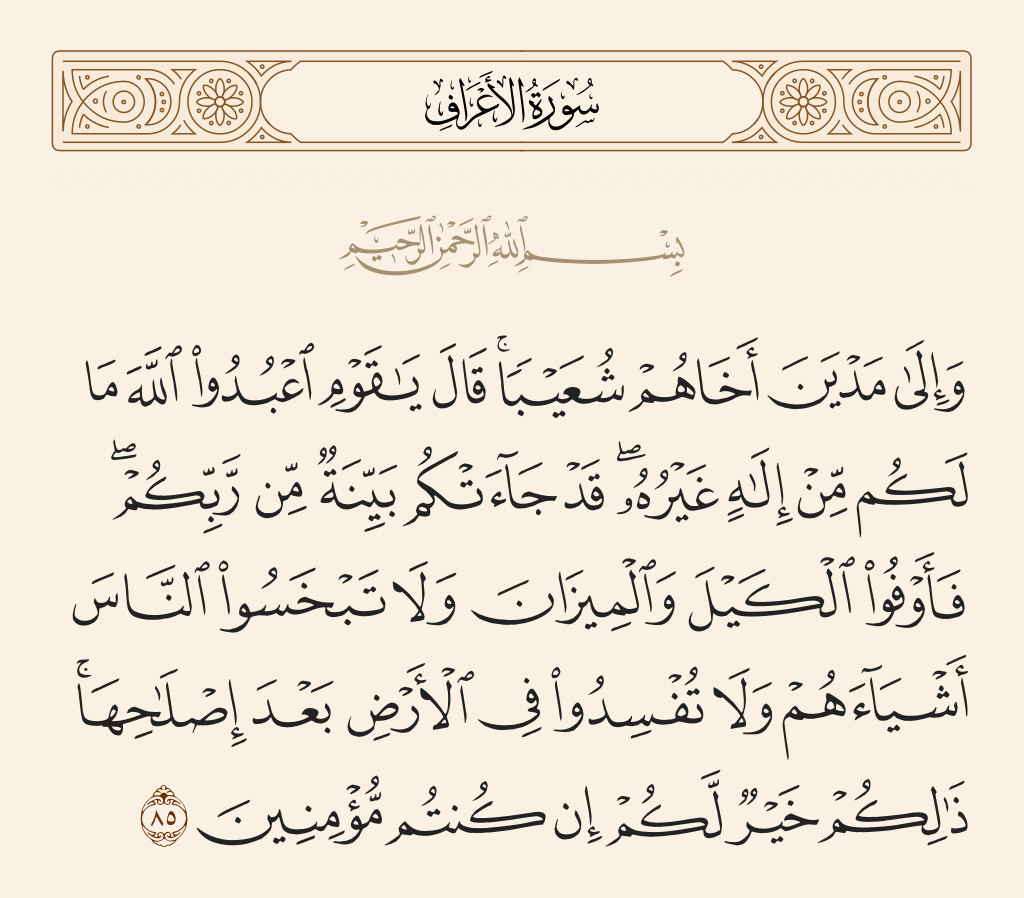 سُورَةُ الأَعْرَافِ
بِسْمِ ٱللَّهِ ٱلرَّحْمَٰنِ ٱلرَّحِيمِ
وَإِلَىٰ مَدْيَنَ أَخَاهُمْ شُعَيْبًاۚ قَالَ يَٰقَوْمِ ٱعْبُدُوا۟ ٱللَّهَ مَا
لَكُم مِّنْ إِلَٰهٍ غَيْرُهُۥۖ قَدْ جَآءَتْكُم بَيِّنَةٌ مِّن رَّبِّكُمْۖ
فَأَوْفُوا۟ ٱلْكَيْلَ وَٱلْمِيزَانَ وَلَا تَبْخَسُوا۟ ٱلنَّاسَ
أَشْيَآءَهُمْ وَلَا تُفْسِدُوا۟ فِى ٱلْأَرْضِ بَعْدَ إِصْلَٰحِهَاۚ
ذَٰلِكُمْ خَيْرٌ لَّكُمْ إِن كُنتُم مُّؤْمِنِينَ ٨٥